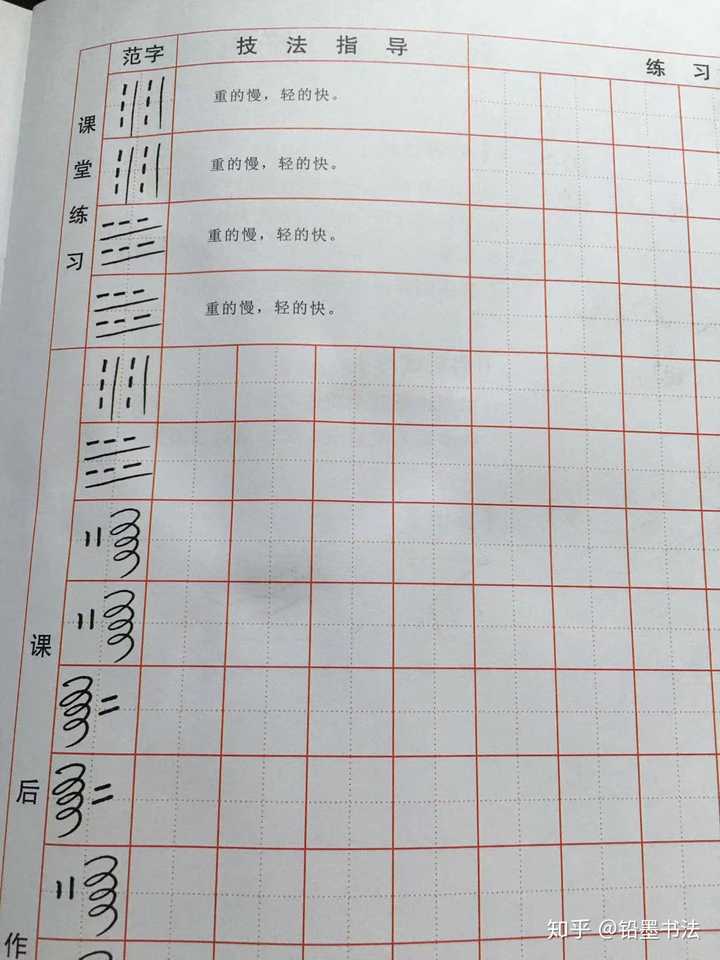 范字 技法指导 练习
课堂练习
重的慢，轻的快。
重的慢，轻的快。
重的慢，轻的快。
重的慢，轻的快。
课后作
知乎 @铅墨书法